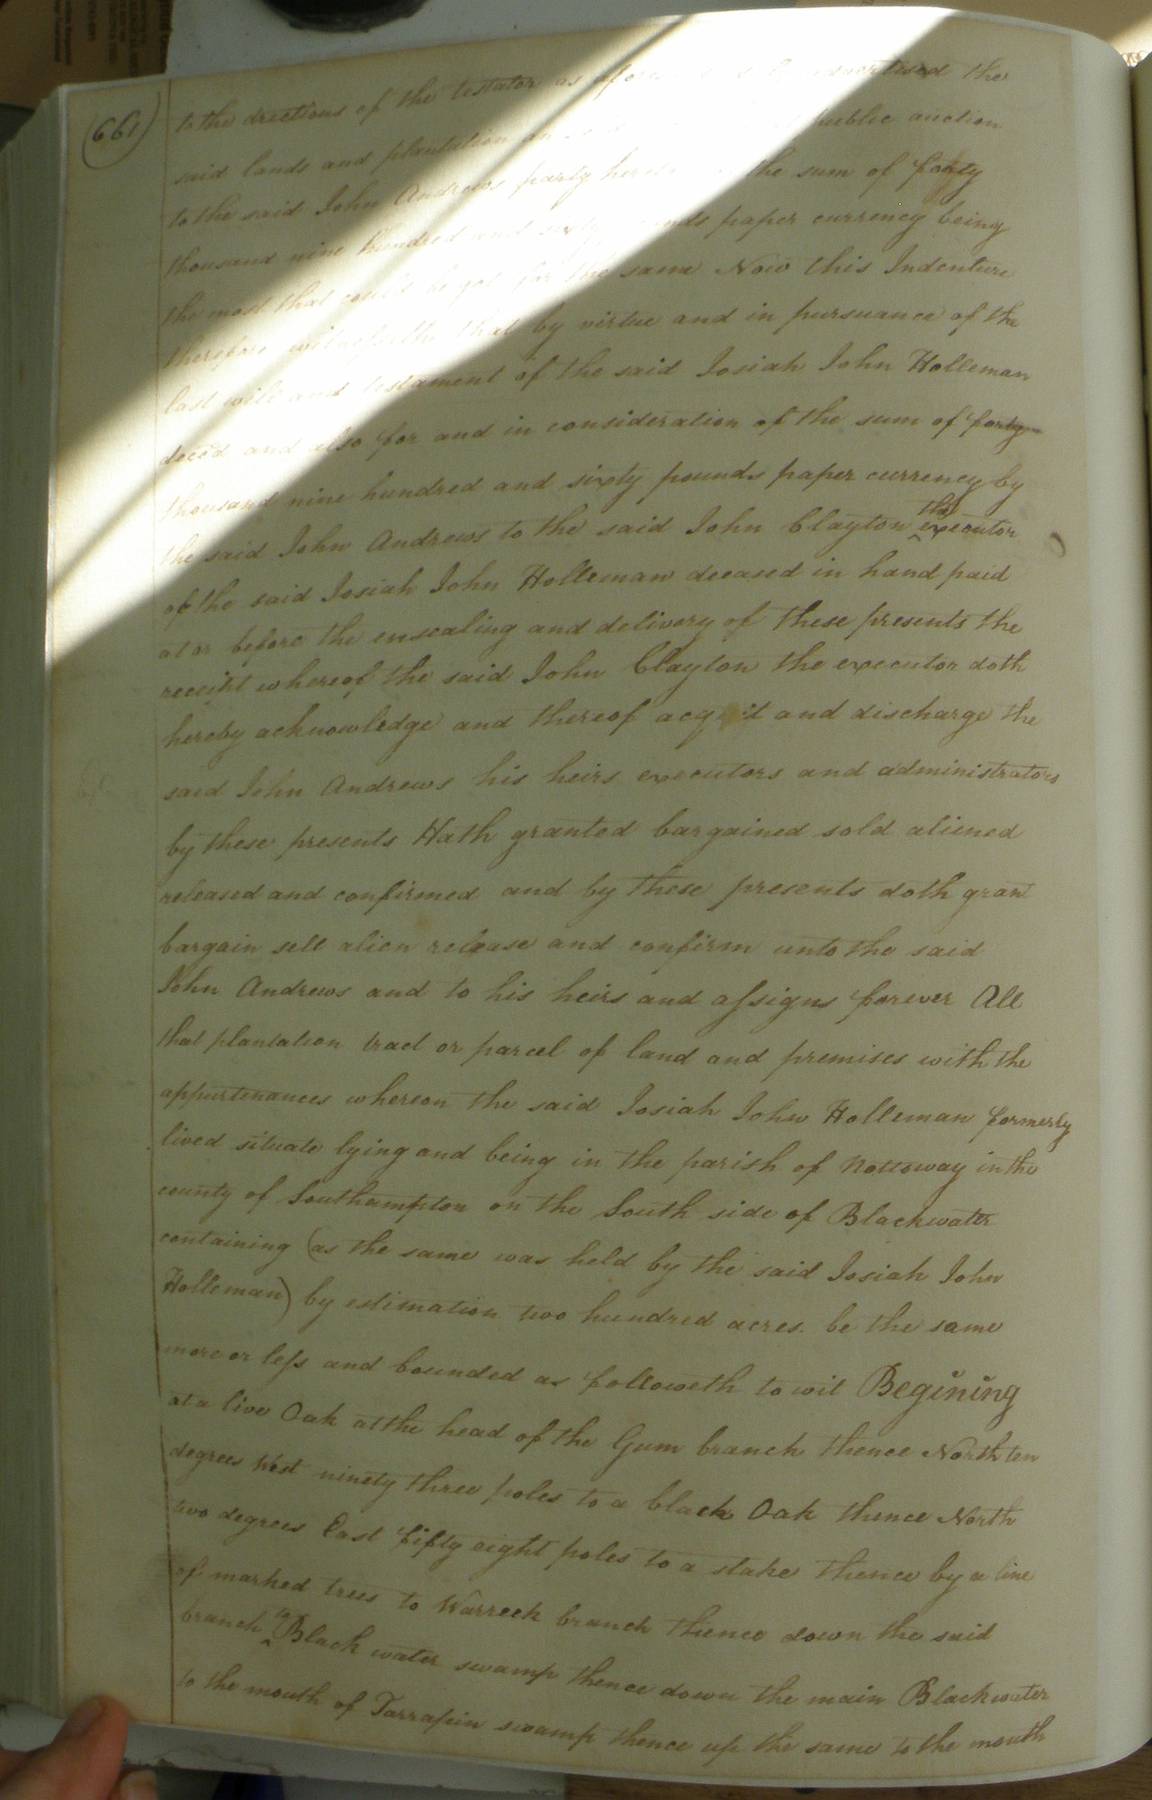 661
to the directions of the testator as advertised the
said lands and plantation public auction
to the said John Andrews party the sum of forty
thousand nine hundred and sixty paper currency being
the most that could be got for the same Now this Indenture
therefore witnesseth that by virtue and in pursuance of the
last will and testament of the said Josiah John Holleman
deced and also for and in consideration of the sum of forty
thousand nine hundred and sixty pounds paper currency by
the said John Andrews to the said John Clayton the executor
of the said Josiah John Holleman deceased in hand paid
at or before the ensealing and delivery of these presents the
receipt whereof the said John Clayton the executor doth
hereby acknowledge and thereof acquit and discharge the
said John Andrews his heirs executors and administrators
by these presents Hath granted bargained sold aliened
released and confirmed and by these presents doth grant
bargain sell alien release and confirm unto the said
John Andrews and to his heirs and assigns forever All
that plantation tract or parcel of land and premises with the
appurtenances whereon the said Josiah John Holleman formerly
lived situate lying and being in the parish of Nottoway in the
county of Southampton on the South side of Blackwater
containing (as the same was held by the said Josiah John
Holleman) by estimation two hundred acres be the same
more or less and bounded as followeth to wit Begining
at a live Oak at the head of the Gum branch thence North ten
degrees West ninety three poles to a black Oak thence North
two degrees East fifty eight poles to a stake thence by a line
of marked trees to Warreek branch thence down the said
branch to Black water swamp thence down the main Blackwater
to the mouth of Tarrapin swamp thence up the same to the mouth